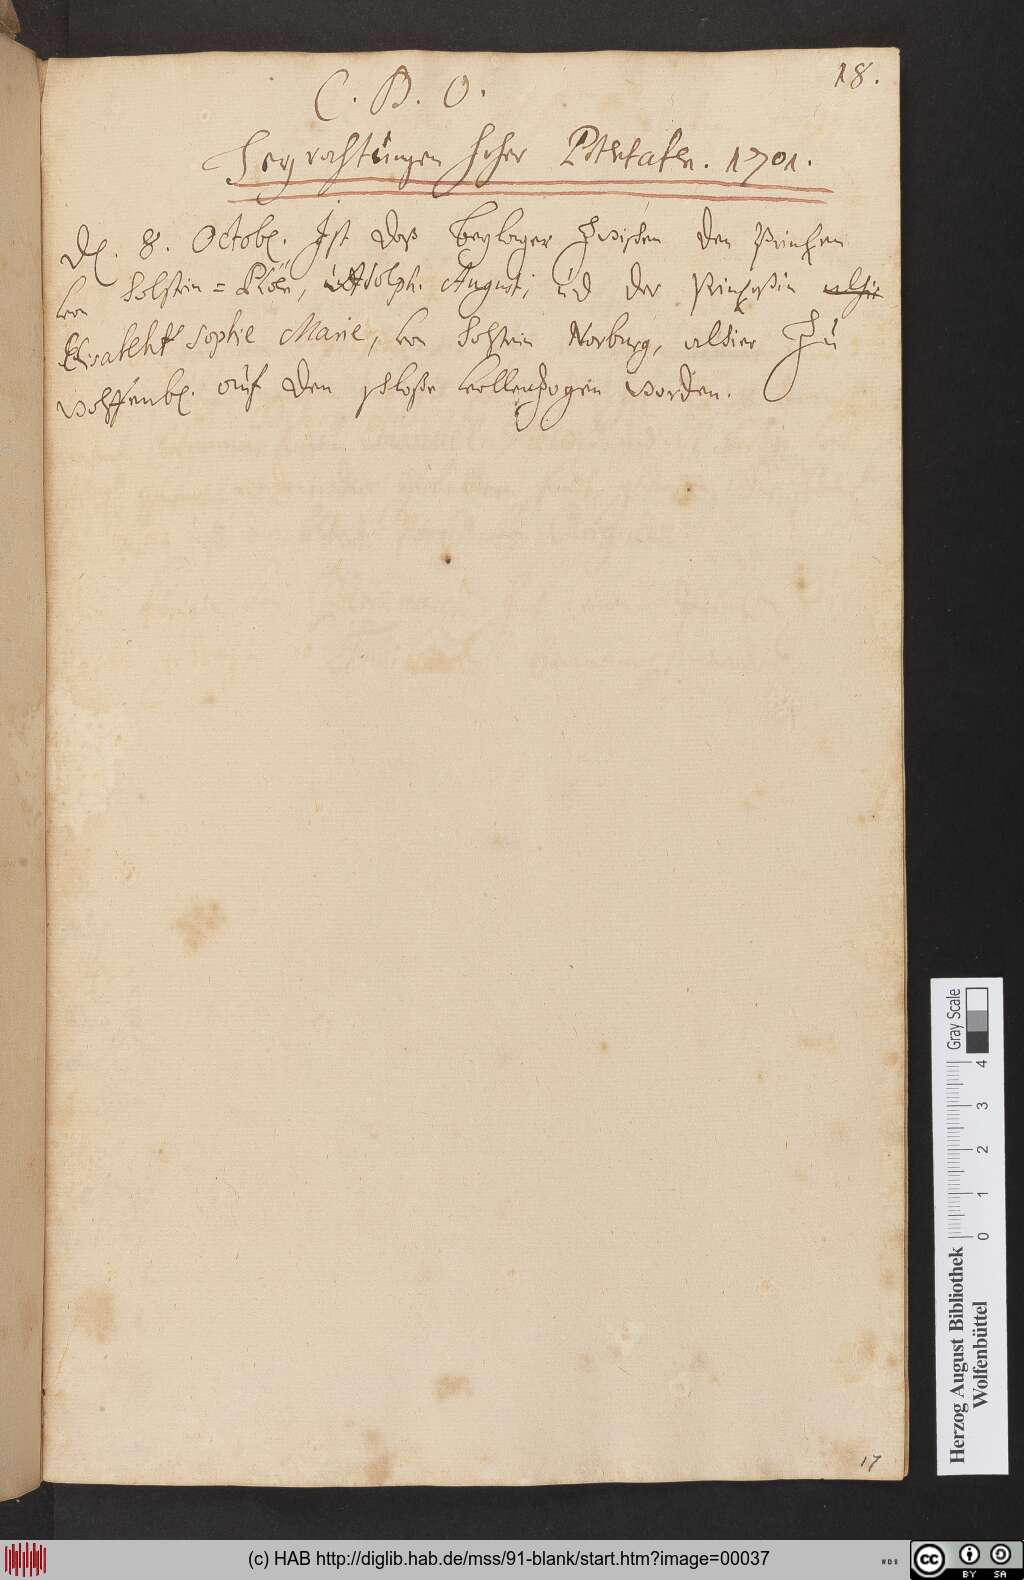 18.
C. B. O.
Heyrathungen hoher Potentaten. 1701.
D. 8. Octob. Ist daß beylager zwischen den Printzen
von Holstein = Plöen, Adolph. August, ud der Printzeßin alhie
Elisabeht Sophie Marie, von Holstein Norburg, alhier zu
Wolffenb. auf den schloße vollenzogen worden.
17
Herzog August Bibliothek
Wolfenbüttel
0 1 2 3 4
Gray Scale
(c) HAB http://diglib.hab.de/mss/91-blank/start.htm?image=00037
WDB
cc BY SA